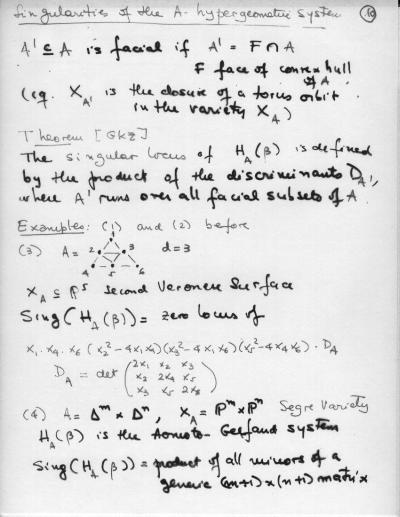 Singularities of the A-hypergeometric system (10)
A' ⊆ A is facial if A' = F ∩ A
F face of convex hull of A
(eq. X_A' is the closure of a torus orbit
in the variety X_A)
Theorem [GKZ]
The singular locus of H_A(β) is defined
by the product of the discriminants D_A',
where A' runs over all facial subsets of A.
Examples: (1) and (2) before
(3) A = 1 2 3 4 5 6 d=3
X_A ⊆ P^5 second Veronese Surface
Sing(H_A(β)) = zero locus of
x_1 · x_4 · x_6 (x_2^2 - 4x_1x_4)(x_3^2 - 4x_1x_6)(x_5^2 - 4x_4x_6) · D_A
D_A = det (2x_1 x_2 x_3
x_2 2x_4 x_5
x_3 x_5 2x_6)
(4) A = Δ^m × Δ^n, X_A = P^m × P^n Segre Variety
H_A(β) is the Aomoto-Gelfand system
Sing(H_A(β)) = product of all minors of a
generic (m+1) × (n+1) matrix